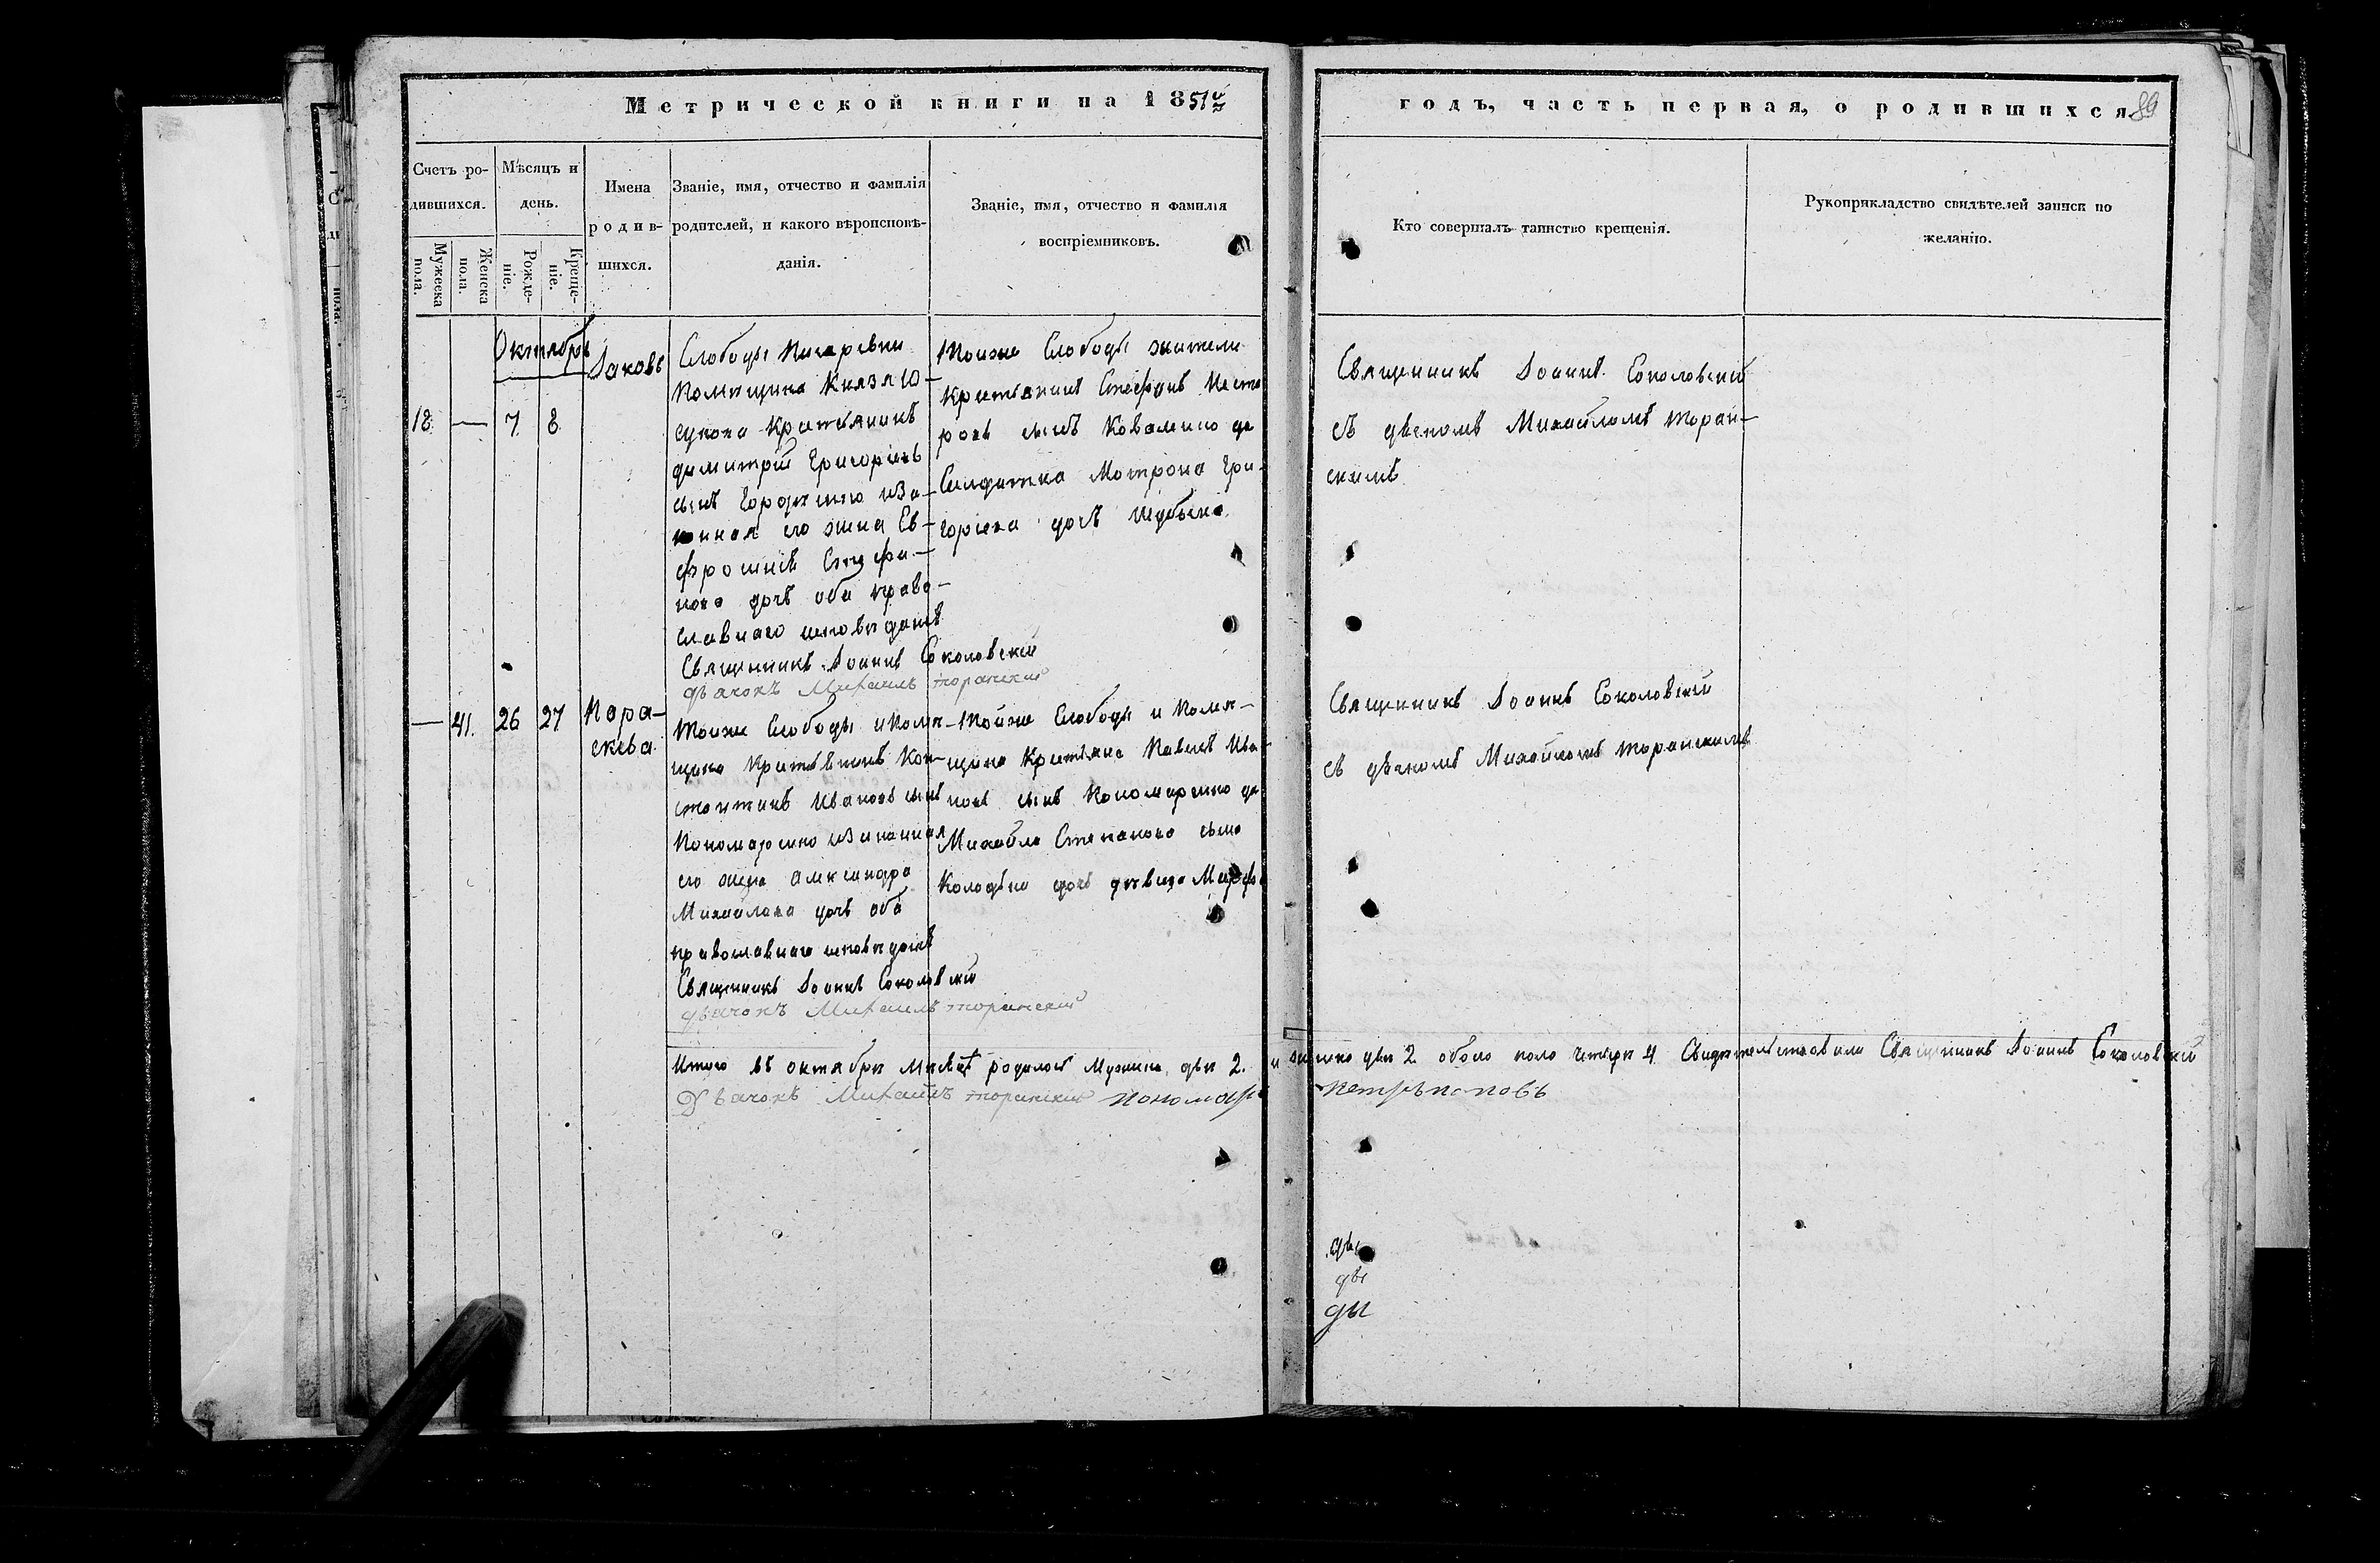 Метрической книги на 1851й
годъ, часть первая, о родившихся
89
Счетъ ро-
дившихся.
Мужеска
пола.
Женска
пола.
Мѣсяцъ и
день.
Рожде-
ніе.
Креще-
ніе.
Имена
родив-
шихся.
Званіе, имя, отчество и фамилія
родителей, и какого вѣроисповѣ-
данія.
Званіе, имя, отчество и фамилія
воспріемниковъ.
Кто совершалъ таинство крещенія.
Рукоприкладство свидѣтелей записи по
желанію.
Октябрь
18 — 7 8
Іаковъ
Слободы Писаревки
Помѣщика Князя Ю-
супова Крестьянинъ
Димитрій Григорьевъ
сынъ законная
его жена Ев-
фросинія Стефа-
нова дочь оба право-
славнаго исповѣданія
Священникъ Іоаннъ Соколовскій
дьячокъ Михаилъ торанскій
Тойже Слободы жители
Крестьянинъ Стефанъ Несте
ровъ сынъ Коваленко да
Солдатка Мотрона Гри-
горіева дочь
Священникъ Іоаннъ Соколовскій
съ дьячкомъ Михаиломъ торан-
скимъ
— 41. 26 27
Пара-
скева
Тойже Слободы и Помѣ-
щика Крестьянинъ Кон-
стантинъ Ивановъ сынъ
Пономаренко и законная
его жена Александра
Михайлова дочь оба
православнаго исповѣданія
Священникъ Іоаннъ Соколовскій
дьячокъ Михаилъ торанскій
Тойже Слободы и Помѣ-
щика Крестьяне Павелъ Ива
новъ сынъ Пономаренко да
Михайла Степанова сына
дочь дѣвица Марфа
Священникъ Іоаннъ Соколовскій
съ дьячкомъ Михаиломъ торанскимъ
Итого въ октябрѣ мѣсяцѣ родилось мужеска двѣ 2. и женска двѣ 2 обоего пола четыре 4 Свидѣтельствовали Священникъ Іоаннъ Соколовскій
Дьячокъ Михаилъ торанскій пономарь петръ поповъ